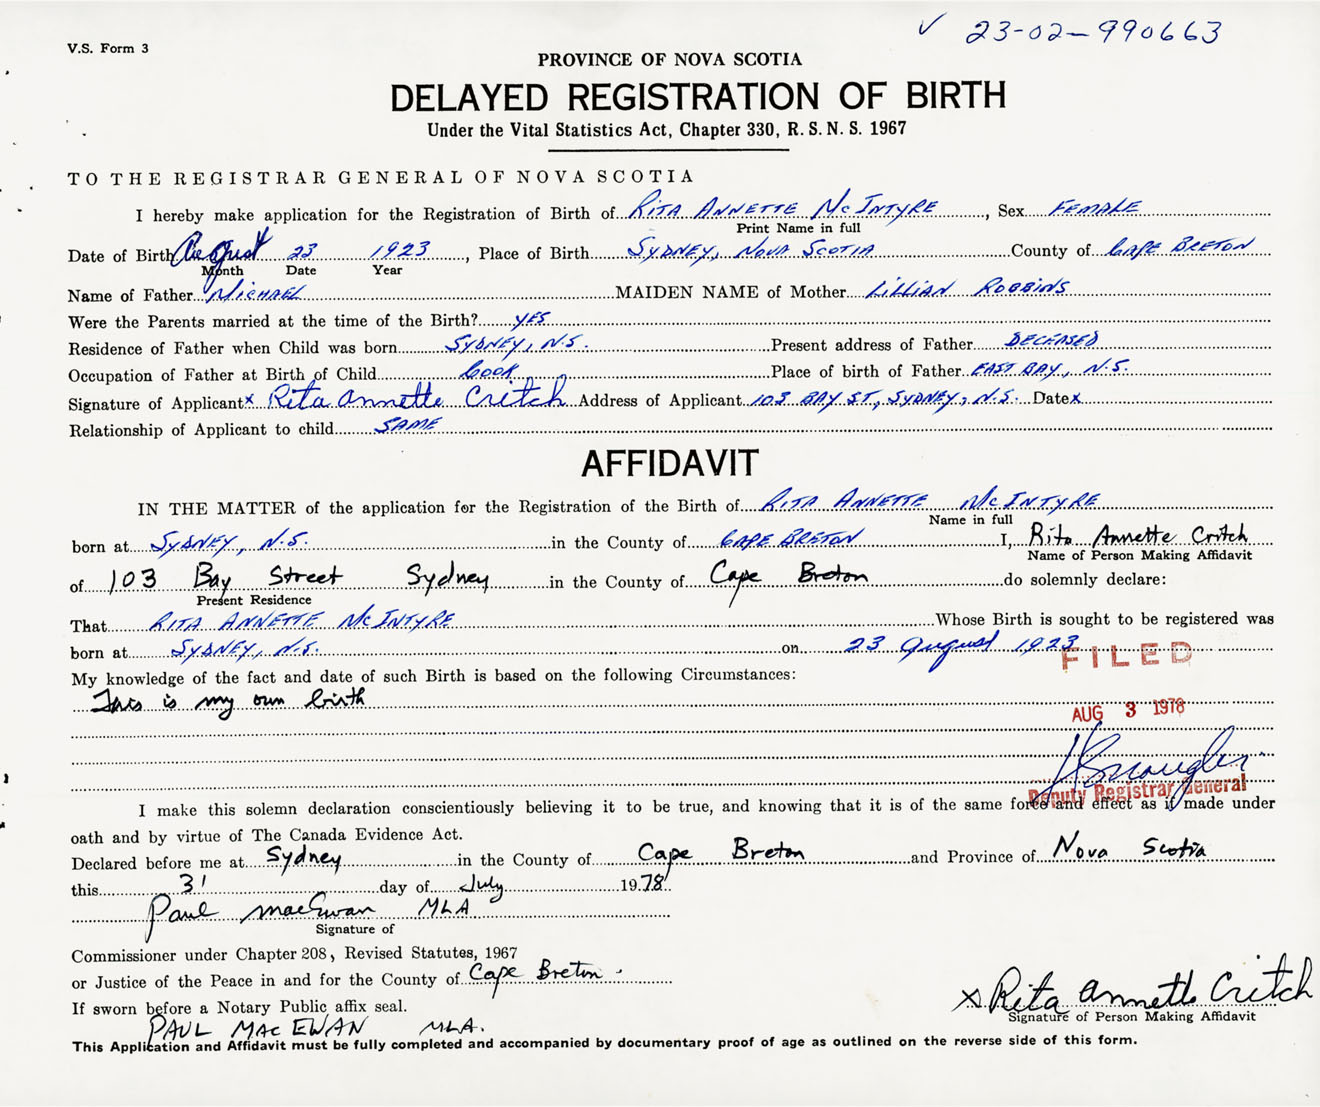 V.S. Form 3
✓ 23-02-990663
PROVINCE OF NOVA SCOTIA
DELAYED REGISTRATION OF BIRTH
Under the Vital Statistics Act, Chapter 330, R.S.N.S. 1967
TO THE REGISTRAR GENERAL OF NOVA SCOTIA
I hereby make application for the Registration of Birth of RITA ANNETTE MCINTYRE, Sex FEMALE
Print Name in full
Date of Birth August 23 1923, Place of Birth SYDNEY, NOVA SCOTIA County of CAPE BRETON
Month Date Year
Name of Father MICHAEL MAIDEN NAME of Mother LILLIAN ROBBINS
Were the Parents married at the time of the Birth? YES
Residence of Father when Child was born SYDNEY, N.S. Present address of Father DECEASED
Occupation of Father at Birth of Child COOK Place of birth of Father EAST BAY, N.S.
Signature of Applicant x Rita Annette Critch Address of Applicant 103 BAY ST., SYDNEY, N.S. Date x
Relationship of Applicant to child SAME
AFFIDAVIT
IN THE MATTER of the application for the Registration of the Birth of RITA ANNETTE MCINTYRE
Name in full
born at SYDNEY, N.S. in the County of CAPE BRETON I, Rita Annette Critch
Name of Person Making Affidavit
of 103 Bay Street Sydney in the County of Cape Breton do solemnly declare:
Present Residence
That RITA ANNETTE MCINTYRE Whose Birth is sought to be registered was
born at SYDNEY, N.S. on 23 August 1923
FILED
My knowledge of the fact and date of such Birth is based on the following Circumstances:
This is my own birth
AUG 3 1978
Deputy Registrar General
I make this solemn declaration conscientiously believing it to be true, and knowing that it is of the same force and effect as if made under
oath and by virtue of The Canada Evidence Act.
Declared before me at Sydney in the County of Cape Breton and Province of Nova Scotia
this 31 day of July 1978.
Paul MacEwan MLA
Signature of
Commissioner under Chapter 208, Revised Statutes, 1967
or Justice of the Peace in and for the County of Cape Breton.
If sworn before a Notary Public affix seal.
x Rita Annette Critch
Signature of Person Making Affidavit
PAUL MACEWAN MLA.
This Application and Affidavit must be fully completed and accompanied by documentary proof of age as outlined on the reverse side of this form.